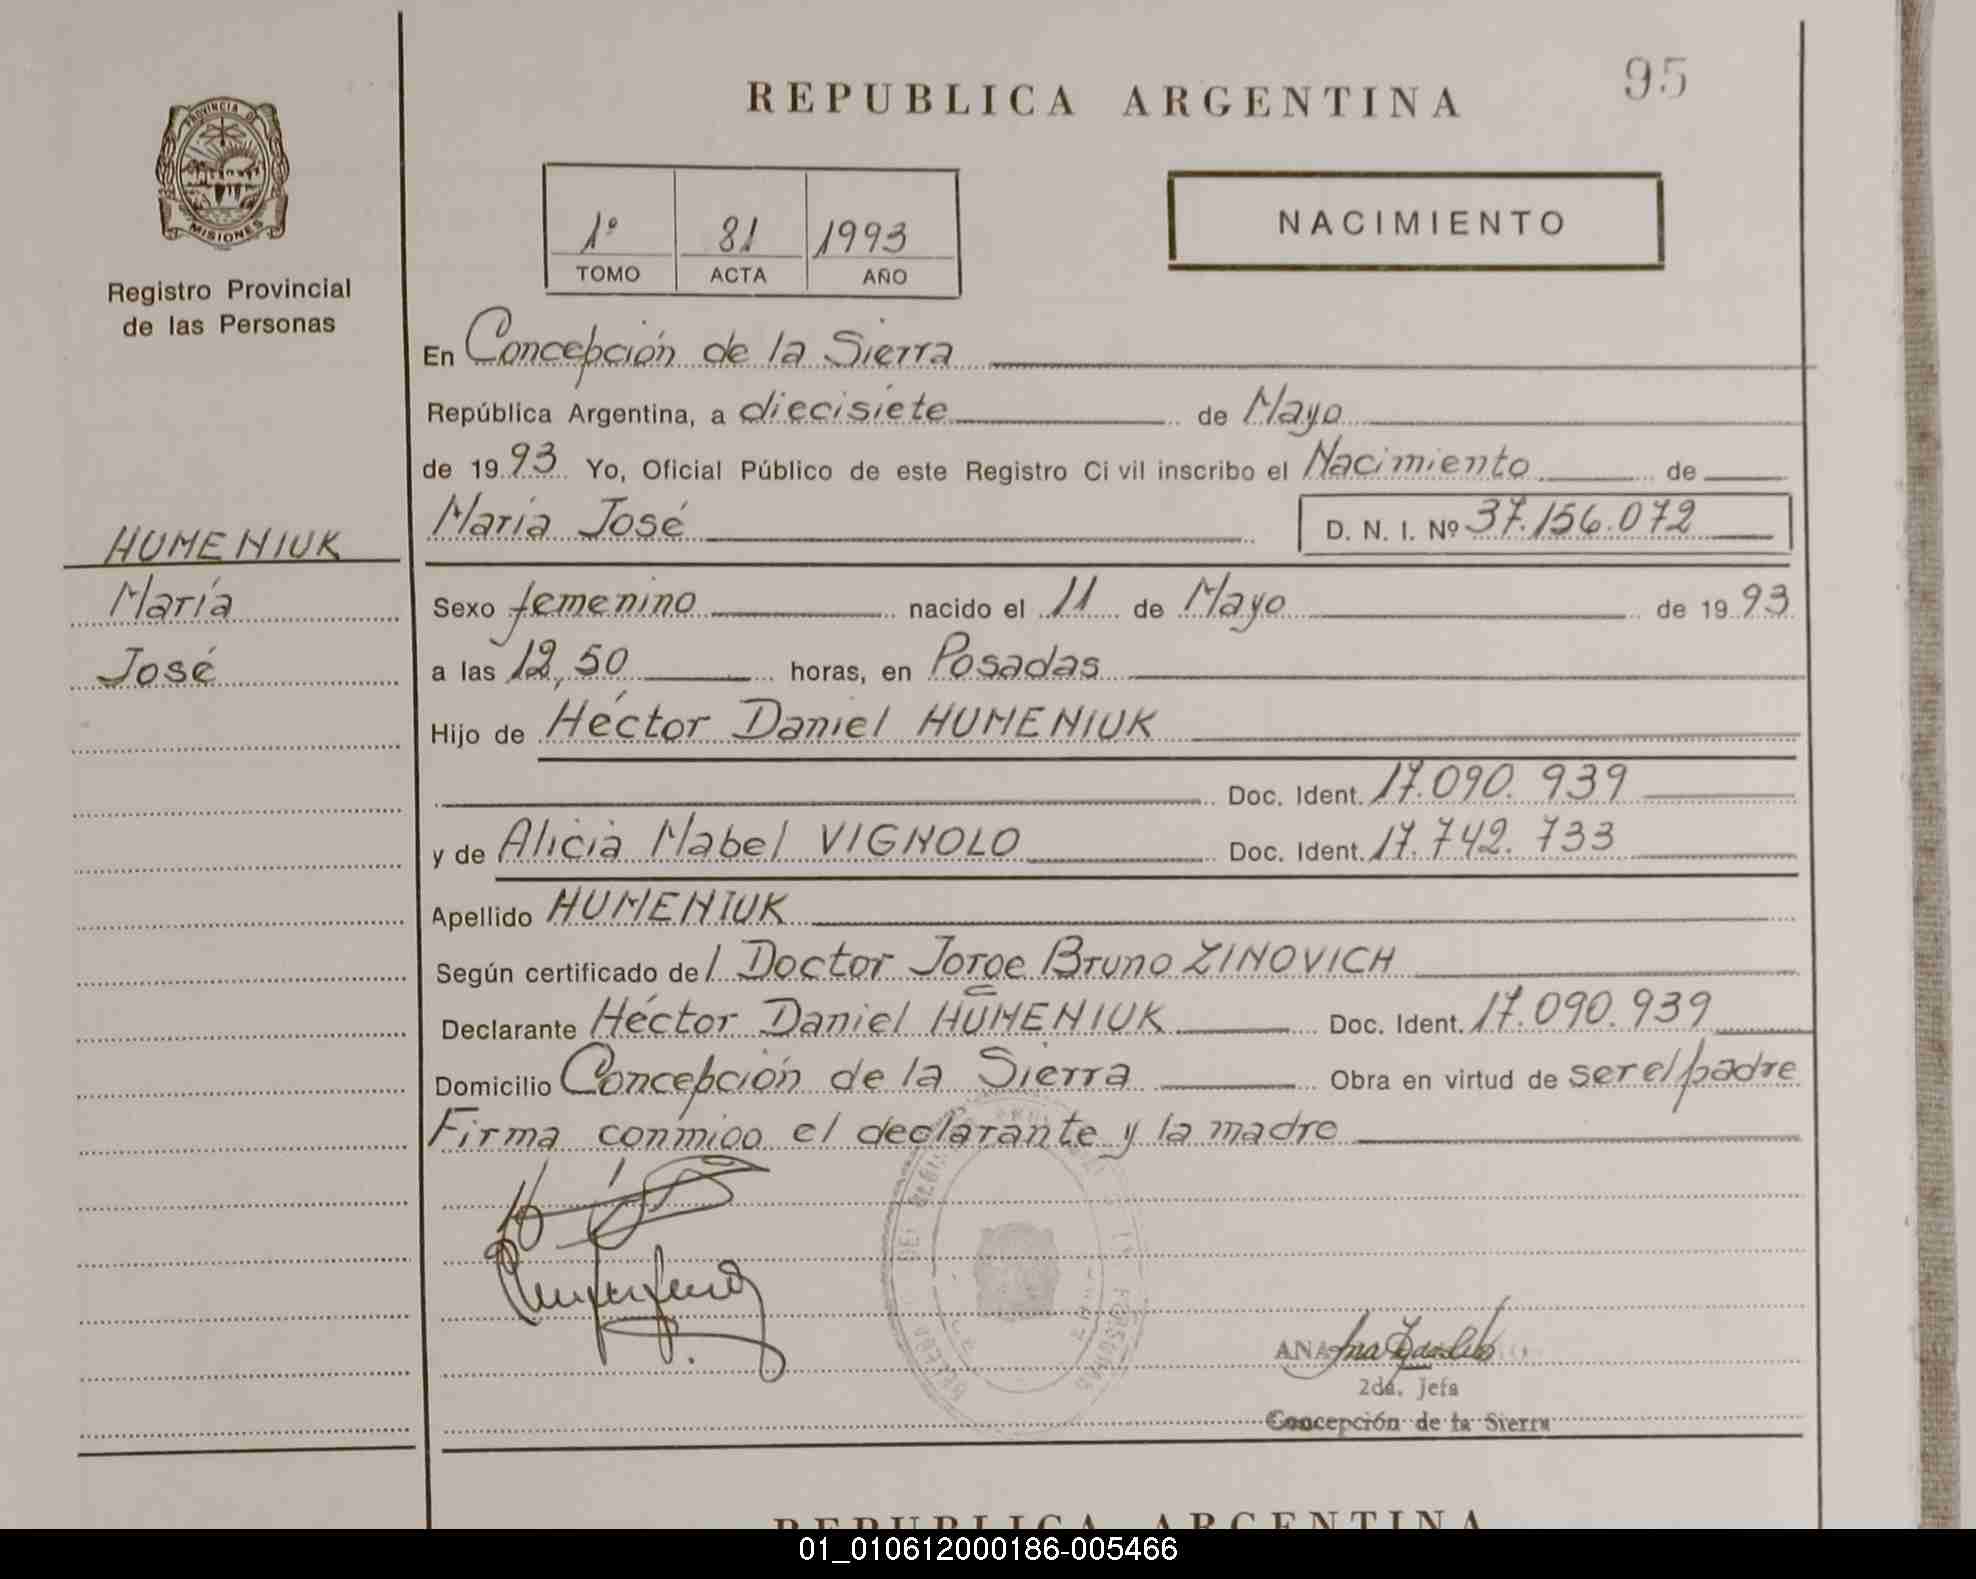 REPUBLICA ARGENTINA
95
PROVINCIA DE
MISIONES
Registro Provincial
de las Personas
1º 81 1993
TOMO ACTA AÑO
NACIMIENTO
En Concepción de la Sierra
República Argentina, a diecisiete de Mayo
de 19 93 Yo, Oficial Público de este Registro Civil inscribo el Nacimiento de
María José D. N. I. Nº 37.156.072
HUMENIUK
María
José
Sexo femenino nacido el 11 de Mayo de 19 93
a las 12,50 horas, en Posadas
Hijo de Héctor Daniel HUMENIUK
Doc. Ident. 17.090.939
y de Alicia Mabel VIGNOLO Doc. Ident. 17.742.733
Apellido HUMENIUK
Según certificado del Doctor Jorge Bruno ZINOVICH
Declarante Héctor Daniel HUMENIUK Doc. Ident. 17.090.939
Domicilio Concepción de la Sierra Obra en virtud de ser el padre
Firma conmigo el declarante y la madre
ANA
2da. Jefa
Concepción de la Sierra
REPUBLICA ARGENTINA
01_010612000186-005466